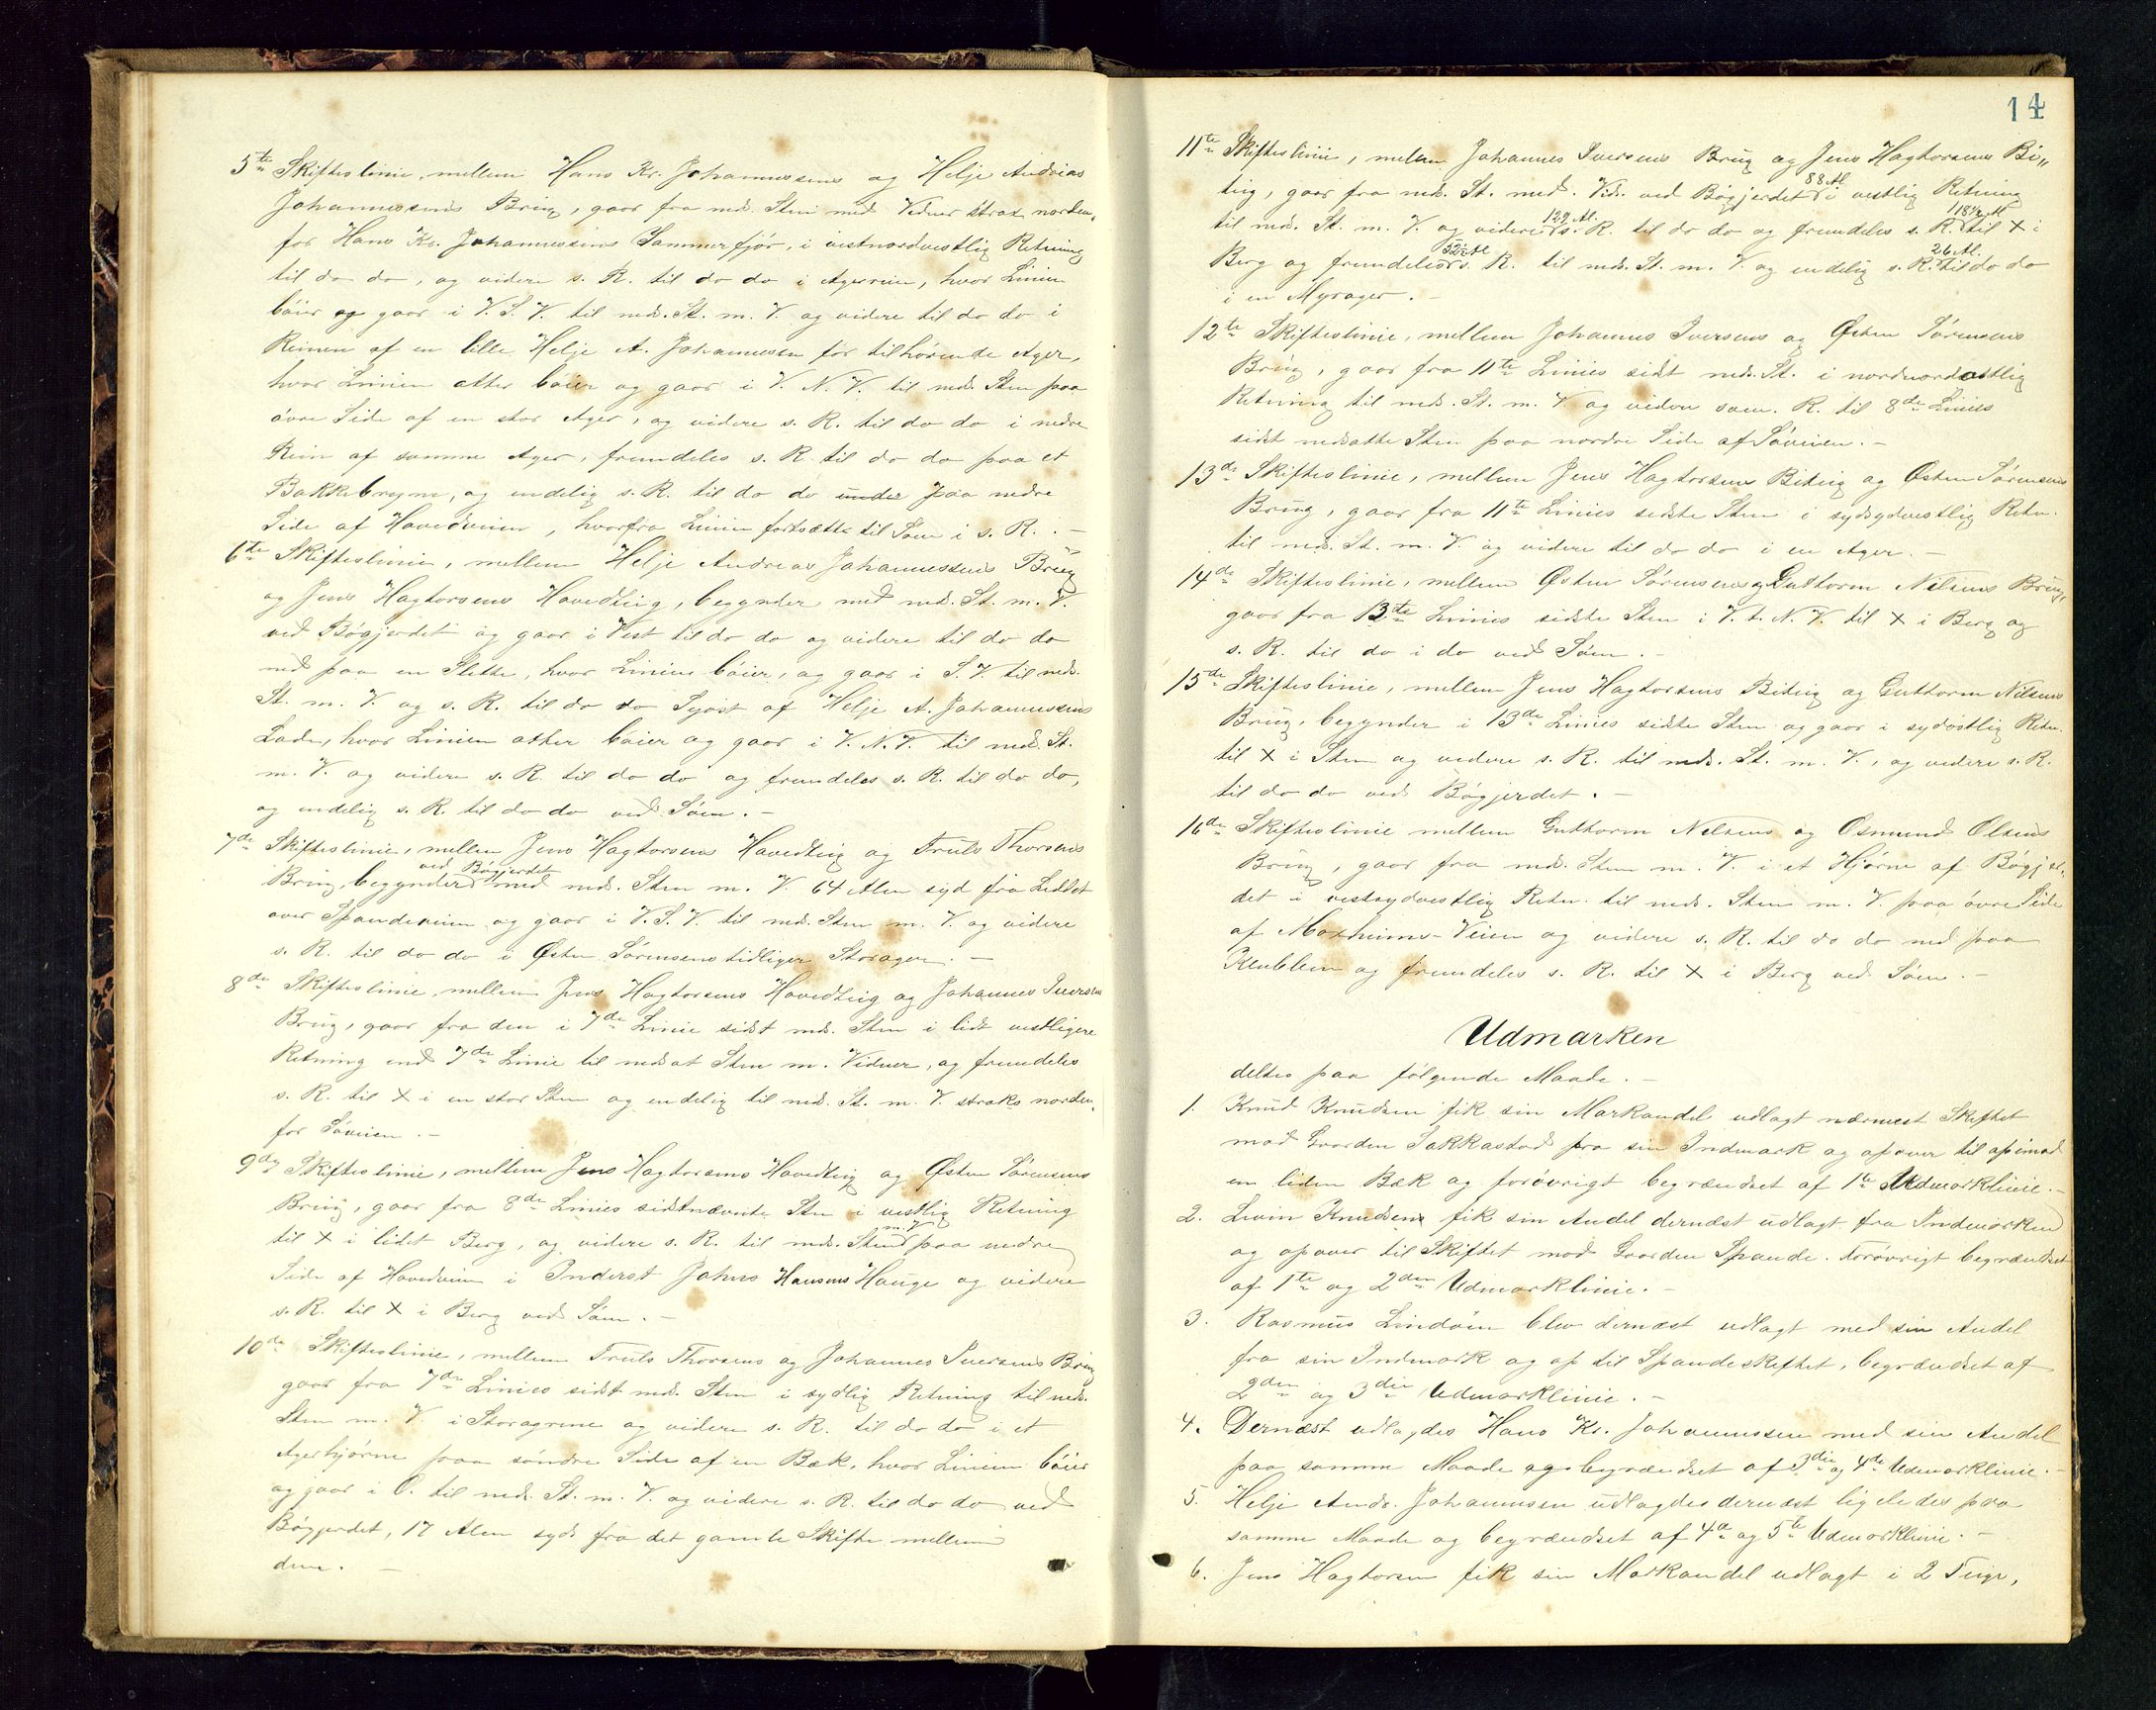 5te Skifteslinie, mellem Hans Kr. Johannessens og Helje Andreas
Johannessens Brug, gaar fra neds. Sten med Vidner strax norden-
for Hans Kr. Johannessens Sommerfjør, i vestnordvestlig Retning
til do do, og videre s. R. til do do i Agerrein, hvor Linien
bøier og gaar i V. S. V. til neds. St. m. V. og videre til do do i
Reinen af en lille Helje A. Johannessen før tilhørende Ager,
hvor Linien atter bøier og gaar i V. N. V. til neds. Sten paa
øvre Side af en stor Ager, og videre s. R. til do do i nedre
Rein af samme Ager, fremdeles s. R. til do do paa et
Bakkebryn, og endelig s. R. til do do under paa nedre
Side af Hovedveien, hvorfra Linien fortsætte til Søen i s. R. -
6te Skifteslinie, mellem Helje Andreas Johannessens Brug
og Jens Hagtorsens Hovedteig, begynder med neds. St. m. V.
ved Bøgjerdet og gaar i Vest til do do og videre til do do
ned paa en Slette, hvor Linien bøier, og gaar i S. V. til neds.
St. m. V. og s. R. til do do Syøst af Helje A. Johannessens
Lade, hvor Linien atter bøier og gaar i V. N. V. til neds. St.
m. V. og videre s. R. til do do og fremdeles s. R. til do do,
og endelig s. R. til do do ved Søen. -
7de Skifteslinie, mellem Jens Hagtorsens Hovedteig og Truls Thorsens
ved Bøgjerdet
Brug, begynder med neds. Sten m. V. 64 Alen syd fra Leddet
over Spandeveien og gaar i V. S. V. til neds. Sten m. V. og videre
s. R. til do do i Østen Sørensens tidligere Storager. -
8de Skifteslinie, mellem Jens Hagtorsens Hovedteig og Johannes Iversens
Brug, gaar fra den i 7de Linie sidst neds. Sten i lidt vestligere
Retning end 7de Linie til nedsat Sten m. Vidner, og fremdeles
s. R. til X i en stor Sten og endelig til neds. St. m. V. straks norden-
for Søveien. -
9de Skifteslinie, mellem Jens Hagtorsens Hovedteig og Østen Sørensens
Brug, gaar fra 8de Linies sidstnævnte Sten i vestlig Retning
m. V.
til X i lidet Berg, og videre s. R. til neds. Sten paa nedre
Side af Hovedveien i Inderst Johns Hansens Hauge og videre
s. R. til X i Berg ved Søen. -
10de Skifteslinie, mellem Truls Thorsens og Johannes Iversens Brug
gaar fra 7de Linies sidst neds. Sten i sydlig Retning til neds.
Sten m. V. i Storagrene og videre s. R. til do do i et
Agerhjørne paa søndre Side af en Bæk, hvor Linien bøier
og gaar i O. til neds. St. m. V. og videre s. R. til do do ved
Bøgjerdet, 17 Alen syds fra det gamle Skifte mellem
dem. -
14
11te Skifteslinie, mellem Johannes Iversens Brug og Jens Hagtorsens Bi-
88 Al.
teig, gaar fra neds. St. med. Vid. ved Bøgjerdet i vestlig Retning
129 Al. 118½ Al
til neds. St. m. V. og videre s. R. til do do og fremdeles s. R. til X i
52½ Al 26 Al.
Berg og fremdeles s. R. til neds. St. m. V. og endelig s. R. til do do
i en Myrager. -
12te Skifteslinie, mellem Johannes Iversens og Østen Sørensens
Brug, gaar fra 11te Linies sidst neds. St. i nordnordostlig
Retning til neds. St. m. V. og videre sam. R. til 8de Linies
sidst nedsatte Sten paa nordre Side af Søveien. -
13de Skifteslinie, mellem Jens Hagtorsens Biteig og Østen Sørensens
Brug, gaar fra 11te Linies sidste Sten i sydsydvestlig Retn.
til neds. St. m. V. og videre til do do i en Ager. -
14de Skifteslinie, mellem Østen Sørensens og Guttorm Nelsens Brug,
gaar fra 13te Linies sidste Sten i V. t. N. V. til X i Berg og
s. R. til do i do ved Søen. -
15de Skifteslinie, mellem Jens Hagtorsens Biteig og Guttorm Nilsens
Brug, begynder i 13de Linies sidste Sten og gaar i sydøstlig Retn.
til X i Sten og videre s. R. til neds. St. m. V., og videre s. R.
til do do ved Bøgjerdet. -
16de Skifteslinie mellem Guttorm Nelsens og Osmund Olsens
Brug, gaar fra neds. Sten m. V. i et Hjørne af Bøgjer-
det i vestsydvestlig Retn. til neds. Sten m. V. paa øvre Side
af Moxheims-Veien og videre s. R. til do do ned paa
Kleblem og fremdeles s. R. til X i Berg ved Søen. -
Udmarken
deltes paa følgende Maade. -
1. Knud Knudsen fik sin Markandel udlagt nærmest Skiftet
mod Gaarden Sakkastad fra sin Indmark og opover til opimod
en liden Bæk og forøvrigt begrændset af 1te Udmarklinie. -
2. Livin Knudsen fik sin Andel dernæst udlagt fra Indmarken
og opover til Skiftet mod Gaarden Spande. Forøvrigt begrændset
af 1te og 2den Udmarklinie. -
3. Rasmus Lindøin blev dernæst udlagt med sin Andel
fra sin Indmark og op til Spandeskiftet, begrændset af
2den og 3die Udmarklinie. -
4. Dernæst udlagdes Hans Kr. Johannessen med sin Andel
paa samme Maade og begrændset af 3die og 4de Udmarklinie. -
5. Helje Andr. Johannessen udlagdes dernæst ligeledes paa
samme Maade og begrændset af 4de og 5te Udmarklinie. -
6. Jens Hagtorsen fik sin Markandel udlagt i 2 Teige,